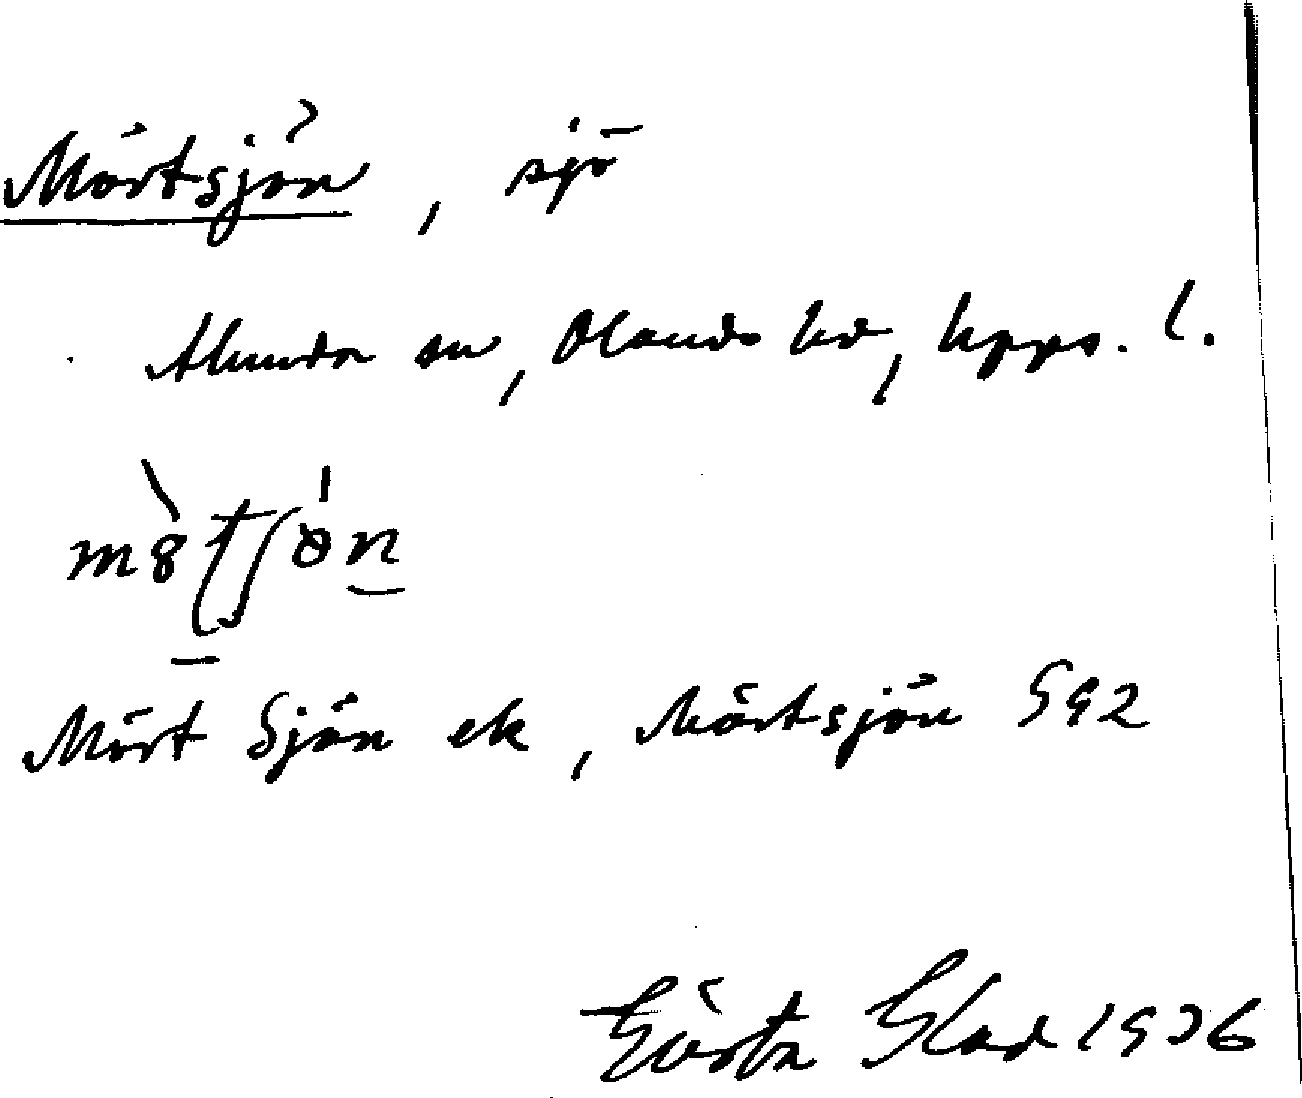 Mörtsjön, sjö
Alunda sn, Olands hd, Upps. l.
Mört Sjön ek, Mörtsjön G92
Gösta Glad 1936